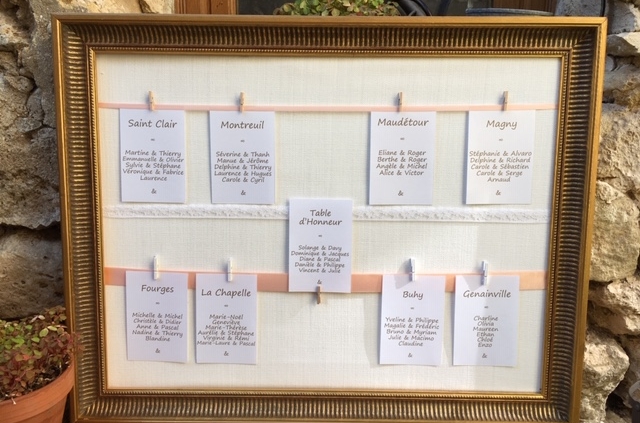 Saint Clair
Martine & Thierry
Emmanuelle & Olivier
Sylvie & Stéphane
Véronique & Fabrice
Laurence
&
Montreuil
Séverine & Thanh
Manue & Jérôme
Delphine & Thierry
Laurence & Hugues
Carole & Cyril
&
Maudétour
Eliane & Roger
Berthe & Roger
Angèle & Michel
Alice & Victor
&
Magny
Stéphanie & Alvaro
Delphine & Richard
Carole & Sébastien
Carole & Serge
Arnaud
&
Table
d'Honneur
Solange & Davy
Dominique & Jacques
Diane & Pascal
Danièle & Philippe
Vincent & Julie
&
Fourges
Michelle & Michel
Christèle & Didier
Anne & Pascal
Nadine & Thierry
Blandine
&
La Chapelle
Marie-Noël
Geneviève
Marie-Thérèse
Aurélie & Stéphane
Virginie & Rémi
Marie-Laure & Pascal
&
Buhy
Yveline & Philippe
Magalie & Frédéric
Bruno & Myriam
Julie & Maximo
Claudine
&
Genainville
Charline
Olivia
Maureen
Ethan
Chloé
Enzo
&